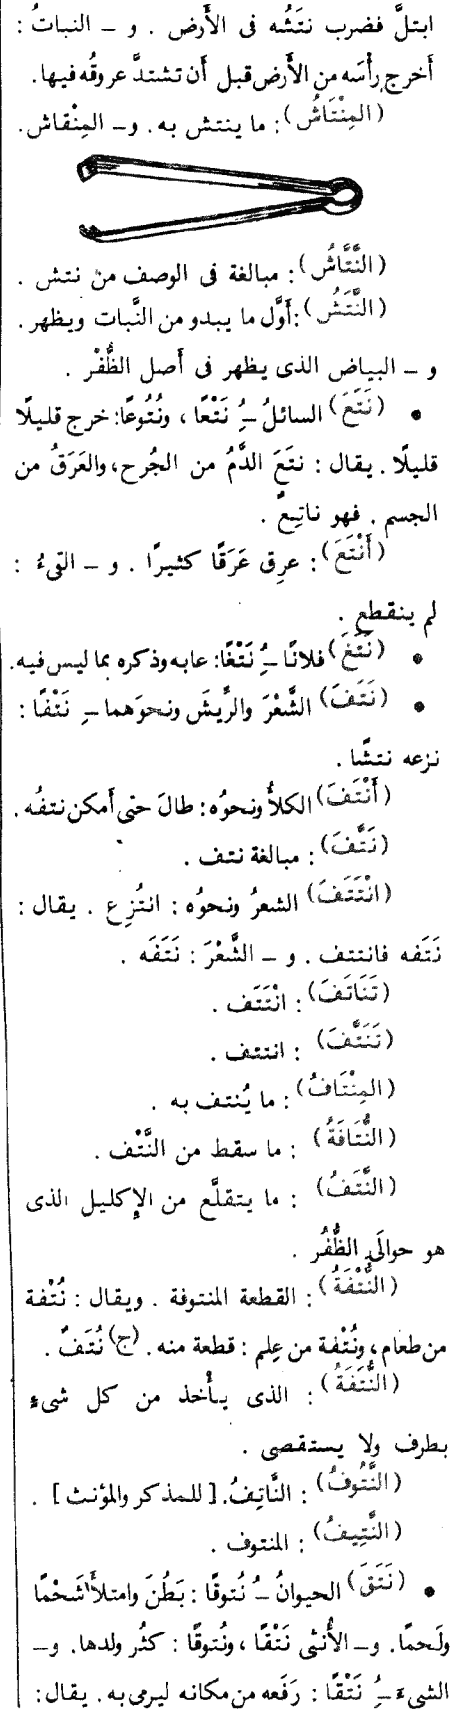 ابتلَّ فضرب نتَشُه فى الأَرض . و – النباتُ :
أَخرج رأْسَه من الأَرض قبل أَن تشتدَّ عروقُه فيها.
(المِنْتَاشُ) : ما ينتش به. و– المِنْقاش.
(النَّتَّاشُ) : مبالغة فى الوصف من نتش .
(النَّتَشُ) : أَوَّل ما يبدو من النَّبات ويظهر.
و – البياض الذى يظهر فى أَصل الظُّفْر .
• (نَتَعَ) السائلُ –ُِ نَتْعًا ، ونُتُوعًا: خرج قليلًا
قليلًا. يقال : نتَعَ الدَّمُ من الجُرح، والعَرَقُ من
الجسم . فهو ناتِعٌ .
(أَنْتَعَ) : عرِق عَرَقًا كثيرًا . و – القىءُ :
لم ينقطع .
• (نَتَغَ) فلانًا –ُِ نَتْغًا: عابه وذكره بما ليس فيه.
• (نَتَفَ) الشَّعْرَ والرِّيشَ ونحوَهما –ِ نَتْفًا :
نزعه نتشًا .
(أَنْتَفَ) الكلأُ ونحوُه : طالَ حتى أَمكن نتفُه .
(نَتَّفَ) : مبالغة نتف .
(انْتَتَفَ) الشعرُ ونحوُه : انتُزِع . يقال :
نَتَفه فانتتف . و – الشَّعْرَ : نَتَفَه .
(تَنَاتَفَ) : انْتَتَف .
(تَنَتَّفَ) : انتتف .
(المِنْتَافُ) : ما يُنتف به .
(النُّتَافَةُ) : ما سقط من النَّتْف .
(النَّتَفُ) : ما يتقلَّع من الإِكليل الذى
هو حوالَىِ الظُّفُر .
(النُّتْفَةُ) : القطعة المنتوفة . ويقال : نُتْفة
من طعام ، ونُتْفة من عِلم : قطعة منه . (ج) نُتَفٌ .
(النُّتَفَةُ) : الذى يأْخذ من كل شىءٍ
بطرف ولا يستقصى .
(النَّتُوفُ) : النَّاتِفُ. [ للمذكر والمؤنث ] .
(النَّتِيفُ) : المنتوف .
• (نَتَقَ) الحيوانُ –ُ نُتوقًا : بَطُنَ وامتلأَ شَحْمًا
ولَحمًا. و– الأُنثى نَتْقًا ، ونُتوقًا : كثُر ولدها. و–
الشىءَ –ُِ نَتْقًا : رَفَعه من مكانه ليرمى به . يقال :